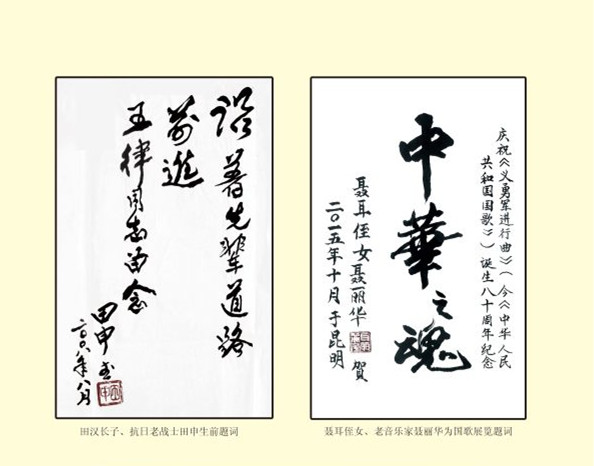 沿着先輩道路
前進
王律同志留念
田申书
二〇〇八年八月
庆祝《义勇军进行曲》(今《中华人民
共和国国歌》)诞生八十周年纪念
中華之魂
聂耳侄女聂丽华 贺
二〇一五年十月于昆明
田汉长子、抗日老战士田申生前题词
聂耳侄女、老音乐家聂丽华为国歌展览题词